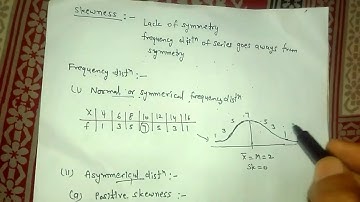 Skewness :-
Lack of symmetry
frequency distⁿ of series goes aways from
symmetry
Frequency distⁿ :-
(i) Normal or symmerical frequency distⁿ
X | 4 | 6 | 8 | 10 | 12 | 14 | 16
f | 1 | 3 | 5 | 7 | 5 | 3 | 1
3 5 7 5 3 1
x̄ = M = Z
SK = 0
(ii) Asymmerical distⁿ :-
(a) Positive skewness :-